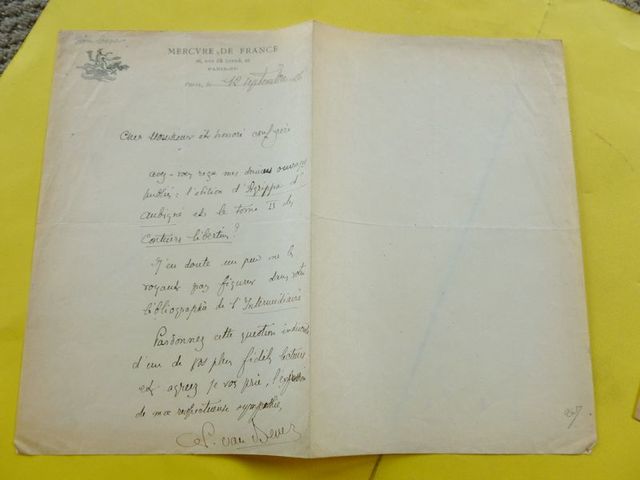 MERCVRE DE FRANCE
26, RUE DE CONDÉ, 26
PARIS
PARIS, le 12 septembre
Cher Monsieur et honoré confrère
avez-vous reçu mes derniers ouvrages
publiés : l'édition d'Agrippa d'
Aubigné et le tome II des
Conteurs libertins ?
J'en doute un peu ne les
voyant pas figurer dans votre
bibliographie de l'Intermédiaire
Pardonnez cette question indiscrète
d'un de vos plus fidèles lecteurs
et agréez je vous prie, l'expression
de ma respectueuse sympathie,
P. van Bever